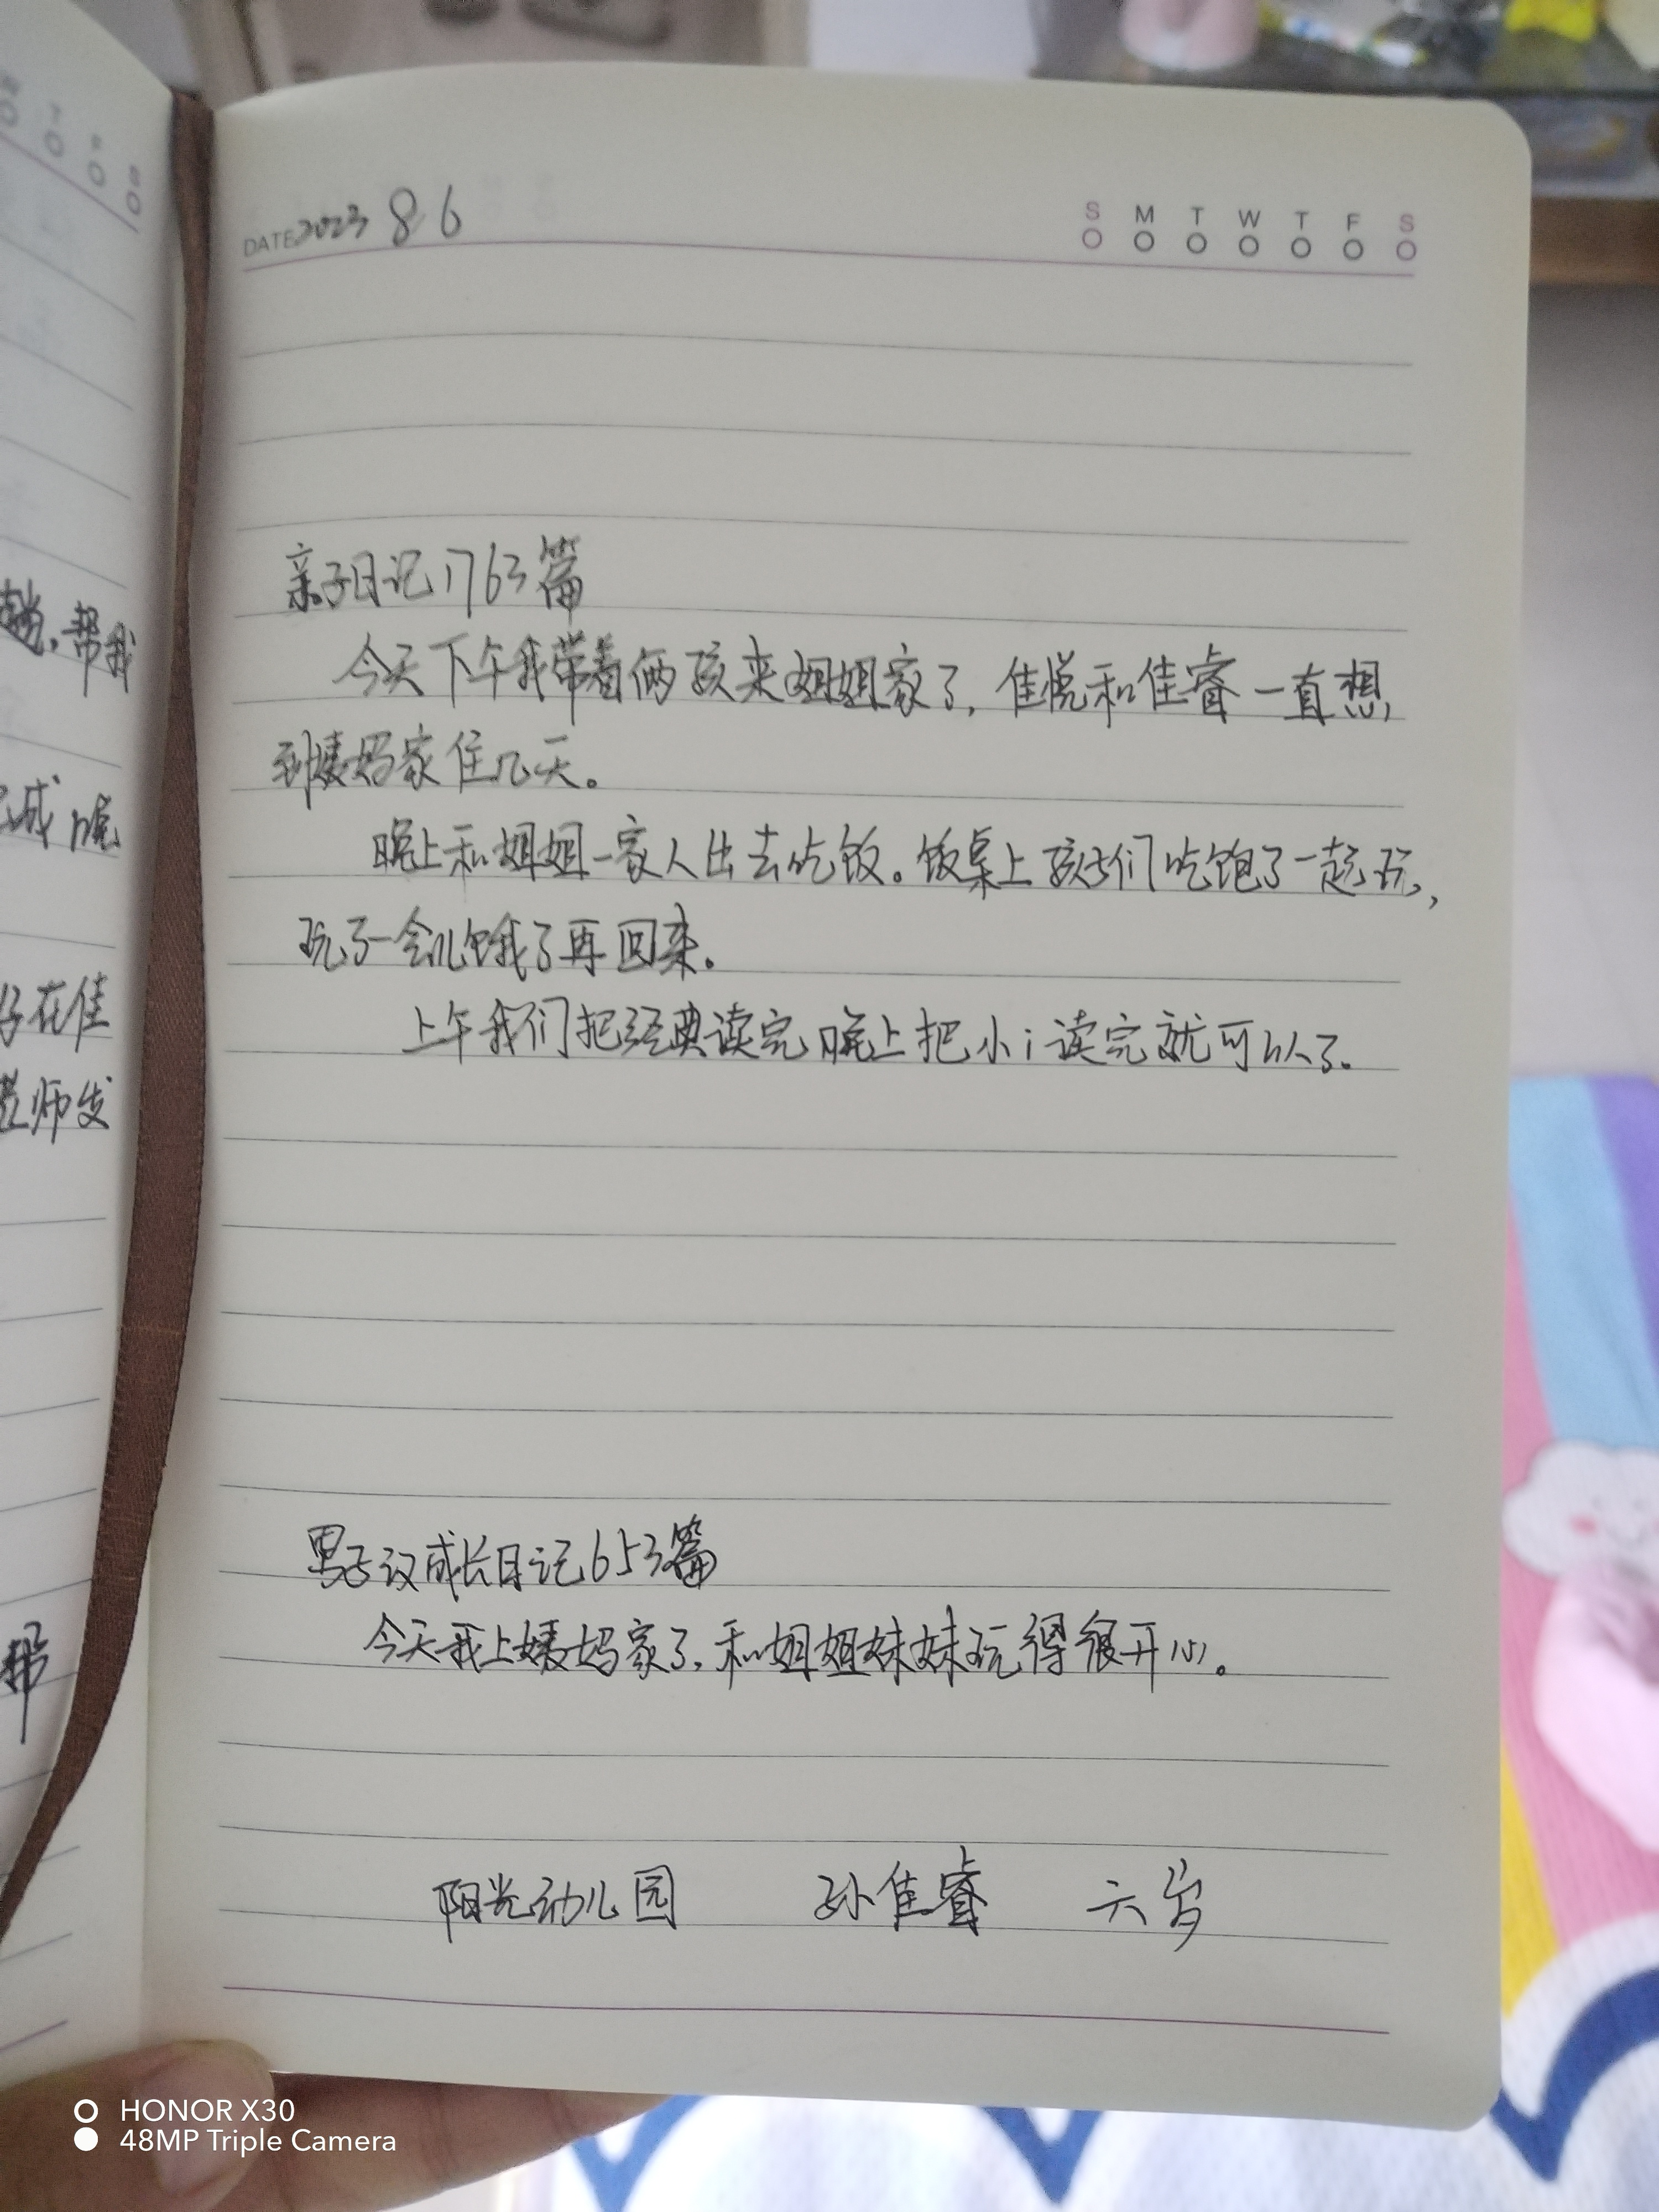 DATE 2023 8 6
S M T W T F S
亲子日记1763篇
今天下午我带着俩孩来姐姐家了，佳悦和佳睿一直想
到姨妈家住几天。
晚上和姐姐一家人出去吃饭。饭桌上孩子们吃饱了一起玩，
玩了一会儿饿了再回来。
上午我们把经典读完晚上把小i读完就可以了。
男子汉成长日记653篇
今天我上姨妈家了，和姐姐妹妹玩得很开心。
阳光幼儿园 孙佳睿 六岁
趟，帮我
成 晚
好在佳
老师发
帮
HONOR X30
48MP Triple Camera